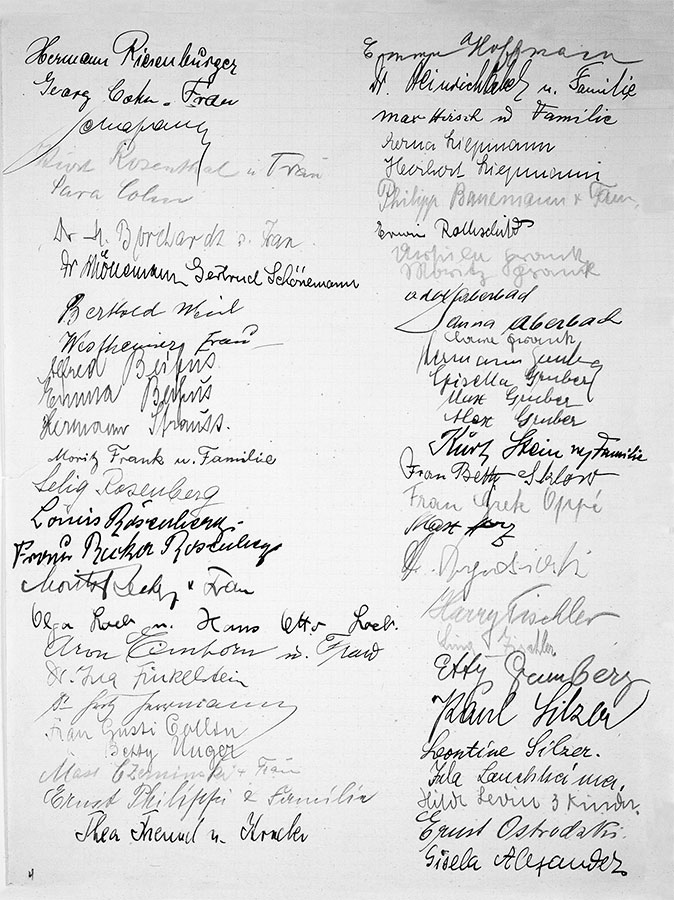 Hermann Riesenburger
Georg Cohn - Frau
Kurt Rosenthal u Frau
Sara Cohn
Dr Borchardt u. Frau
Dr Schönemann Gertrud Schönemann
Berthold Weil
Westheimer Frau
Alfred Beifus
Emma Beifus
Hermann Strauss.
Moritz Frank u. Familie
Selig Rosenberg
Louis Rosenberg.
Frau Rosenberg
Moritz u Frau
Olga Loeb u. Hans Otto Loeb.
Aron Einhorn u. Frau
Dr. Ina Finkelstein
Dr Herrmann
Frau Gusti Collin
Betty Unger
Max Czerninski u Frau
Ernst Philippi & Familie
Thea Freund u.
4
Emma Hoffmann
Dr. Heinrich u. Familie
Max Hirsch u Familie
Herna Liepmann
Herbert Liepmann
Philipp Bannemann & Frau,
Erwin Rothschild
Frank
Moritz Frank
Adolf Aberbach
Janna Aberbach
Claire Frank
Hermann Gruber
Gisella Gruber
Max Gruber
Alex Gruber
Kurt Stein u Familie
Frau Betty Sklow
Frau Grete Oppé
Max
Dr.
Harry Fischler
Lina Fischler
Etty Gamberg
Karl Silzer
Leontine Silzer.
Ida
Hilde Levin 3 Kinder.
Ernst Ostrodzki.
Gisela Alexander